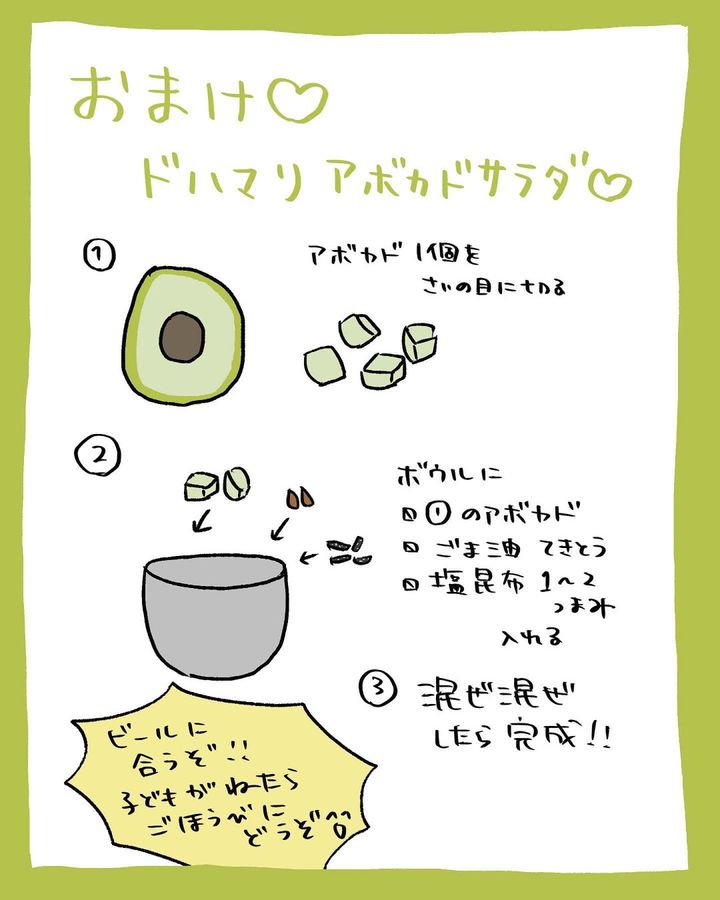 おまけ♡
ドハマリ アボカドサラダ♡
① アボカド 1個を
さいの目に切る
②
ボウルに
①のアボカド
ごま油 てきとう
塩昆布 1〜2
つまみ
入れる
③ 混ぜ混ぜ
したら 完成!!
ビールに
合うぞ!!
子どもが ねたら
ごほうびに
どうぞ